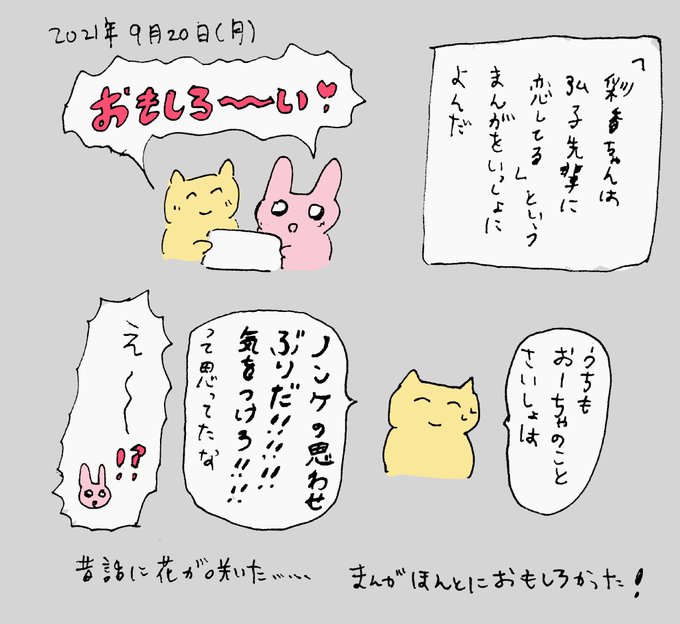 2021年9月20日(月)
「彩香ちゃんは
弘子先輩に
恋してる」という
まんがをいっしょに
よんだ
おもしろ〜〜い♥
うちも
おーちゃのこと
さいしょは
ノンケの思わせ
ぶりだ!!!!
気をつけろ!!!!
って思ってたな
え〜〜
!?
昔話に花が咲いた……
まんがほんとにおもしろかった!